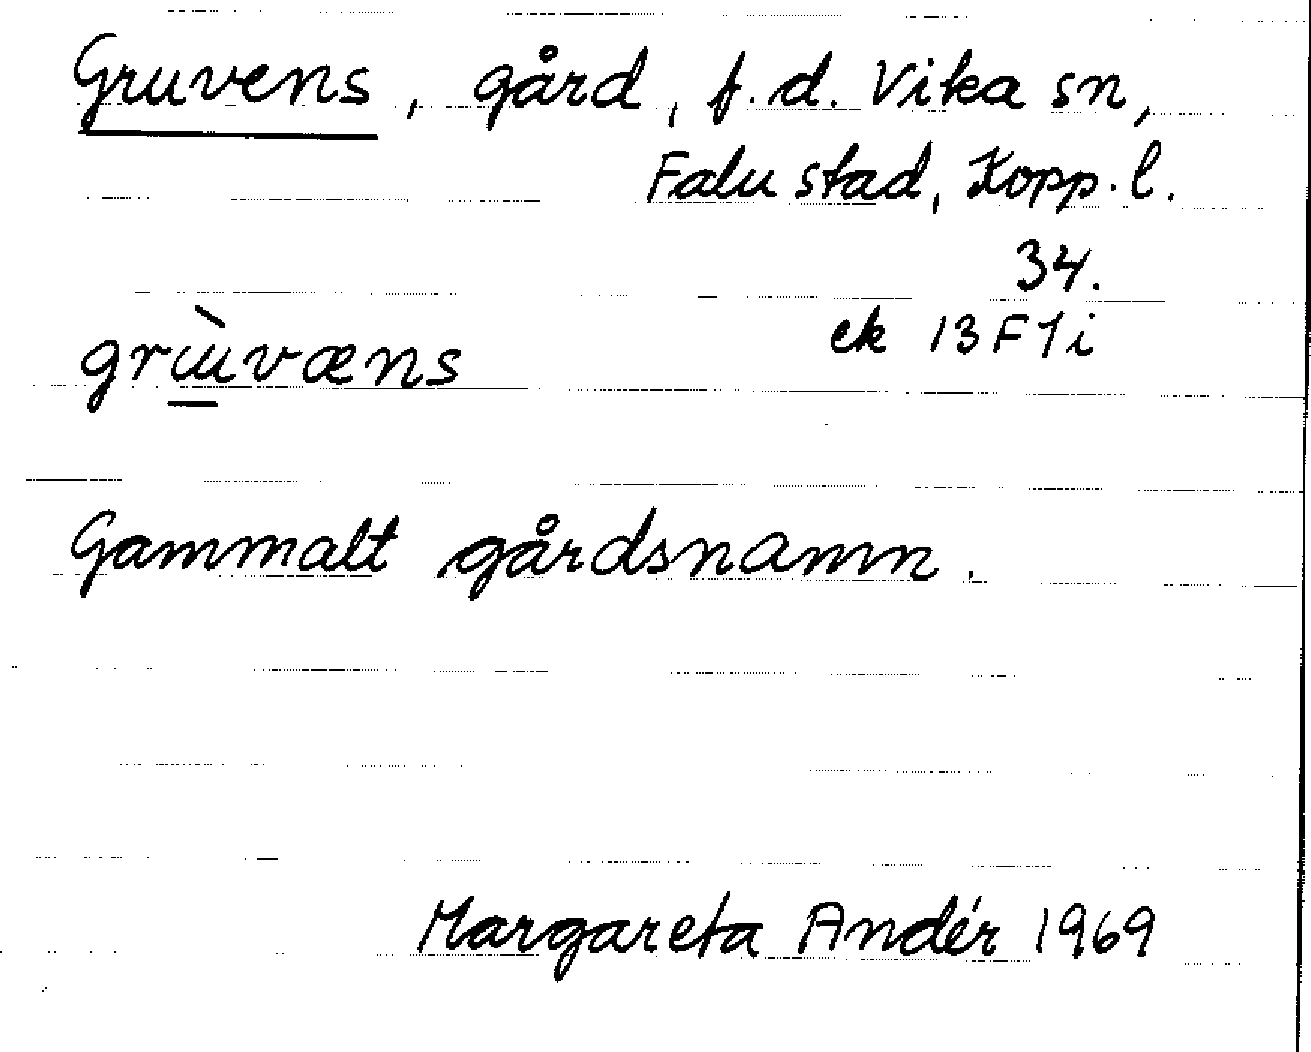 Gruvens, gård, f.d. Vika sn,
Falu stad, Kopp. l.
34.
ek 13F1i
grɯ̀væns
Gammalt gårdsnamn.
Margareta Andér 1969